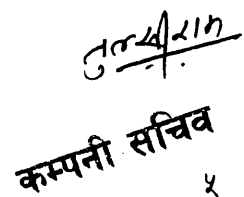 तुलसीराम
कम्पनी सचिव
५